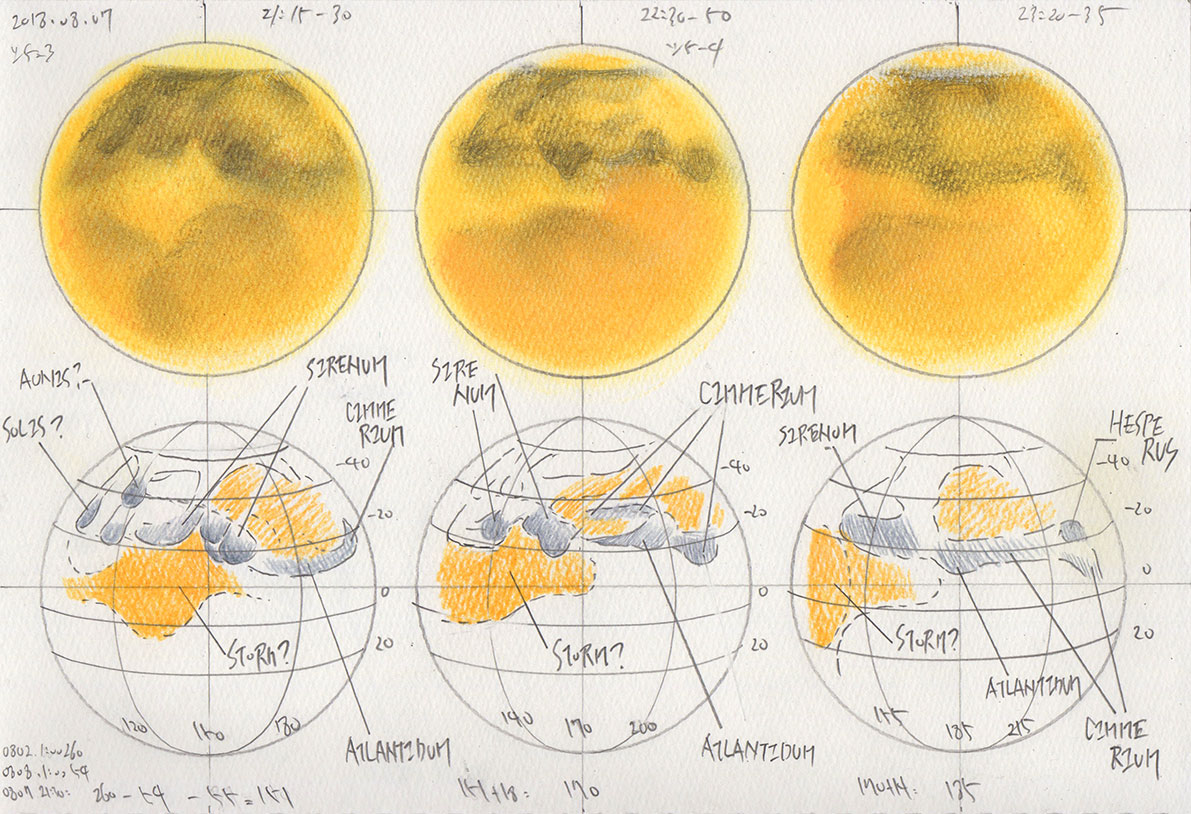 2018.08.07
21:15-30
22:30-50
23:20-35
AONIS?
SOLIS?
SIRENUM
CIMME
RIUM
-40
-20
0
20
STORM?
120 150 180
ATLANTIDUM
SIRE
NUM
CIMMERIUM
-40
-20
0
20
STORM?
140 170 200
ATLANTIDUM
SIRENUM
HESPE
RUS
-40
-20
0
20
STORM?
ATLANTIDUM
155 185 215
CIMME
RIUM
0802.1:00 260
260-54-55=151
151+18= 170
170+14= 185